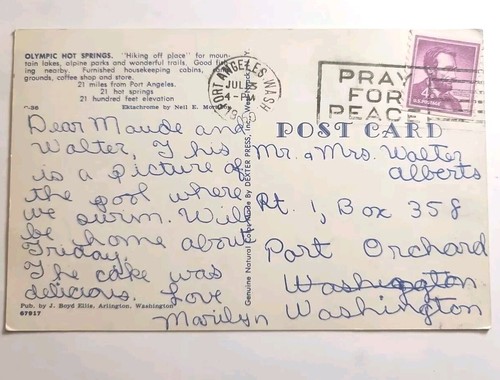 OLYMPIC HOT SPRINGS. "Hiking off place" for moun-
tain lakes, alpine parks and wonderful trails. Good fish-
ing nearby. Furnished housekeeping cabins,
grounds, coffee shop and store.
21 miles from Port Angeles.
21 hot springs
21 hundred feet elevation
Ektachrome by Neil E.
PORT ANGELES, WASH
JUL
PRAY
FOR
PEACE
4¢
U.S. POSTAGE
POST CARD
Dear Maude and
Walter, This
is a picture of
the pool where
we swim. Will
be home about
Friday.
The cake was
delicious. Love
Marilyn
Genuine Natural Color Made By DEXTER PRESS, Inc.
Mr. & Mrs. Walter
Alberts
Rt. 1, Box 358
Port Orchard
Washington
Washington
Pub. by J. Boyd Ellis, Arlington, Washington
67917